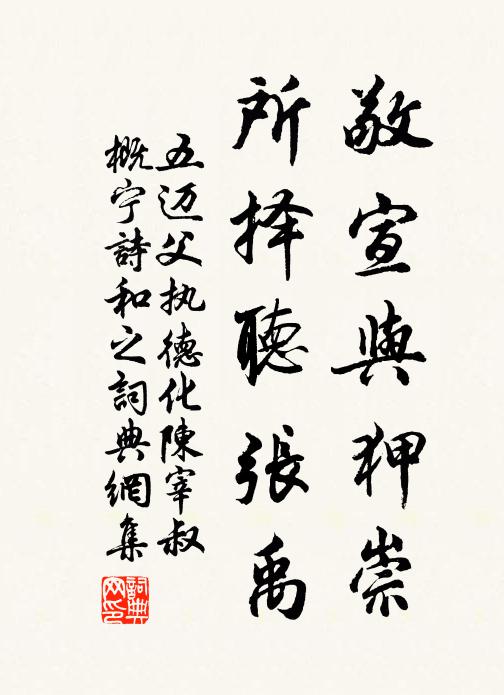 敬宣與狎崇
所择聽張禹
五迈父执德化陳宰叔
概宁詩和之詞典網集
詞典
网印